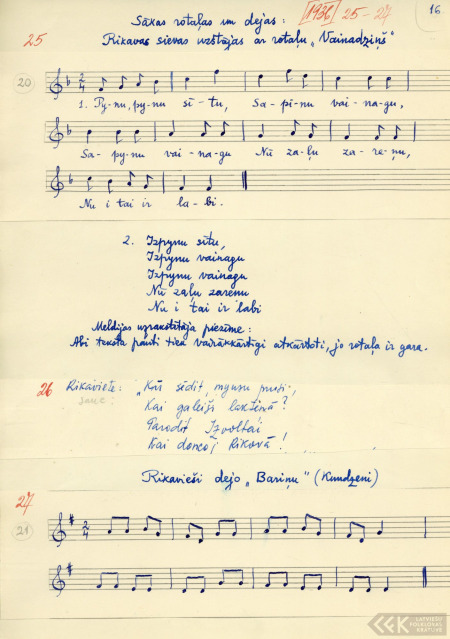 [1936] 25-27 16.
Sākas rotaļas un dejas:
25 Rikavas sievas uzstājas ar rotaļu „Vainadziņš"
20
1. Py-nu, py-nu sī-tu, Sa-pi-nu vai-na-gu,
Sa-py-nu vai-na-gu Nū za-ļu za-re-ņu,
Nu i tai ir la-bi.
2. Izpynu sītu,
Izpynu vainagu
Izpynu vainagu
Nū zaļu zareņu
Nu i tai ir labi
Meldijas uzrakstītāja piezīme:
Abi teksta panti tiek vairākkārtīgi atkārtoti, jo rotaļa ir gara.
26 Rikaviete: „Kas sēdit, myusu puiši,
Kai galeiši
Parodit Izvoltai
Kai doncoj Rikovā!
Rikavieši dejo „Bariņu" (Kundzeni)
27
21
LATVIEŠU
FOLKLORAS
KRĀTUVE